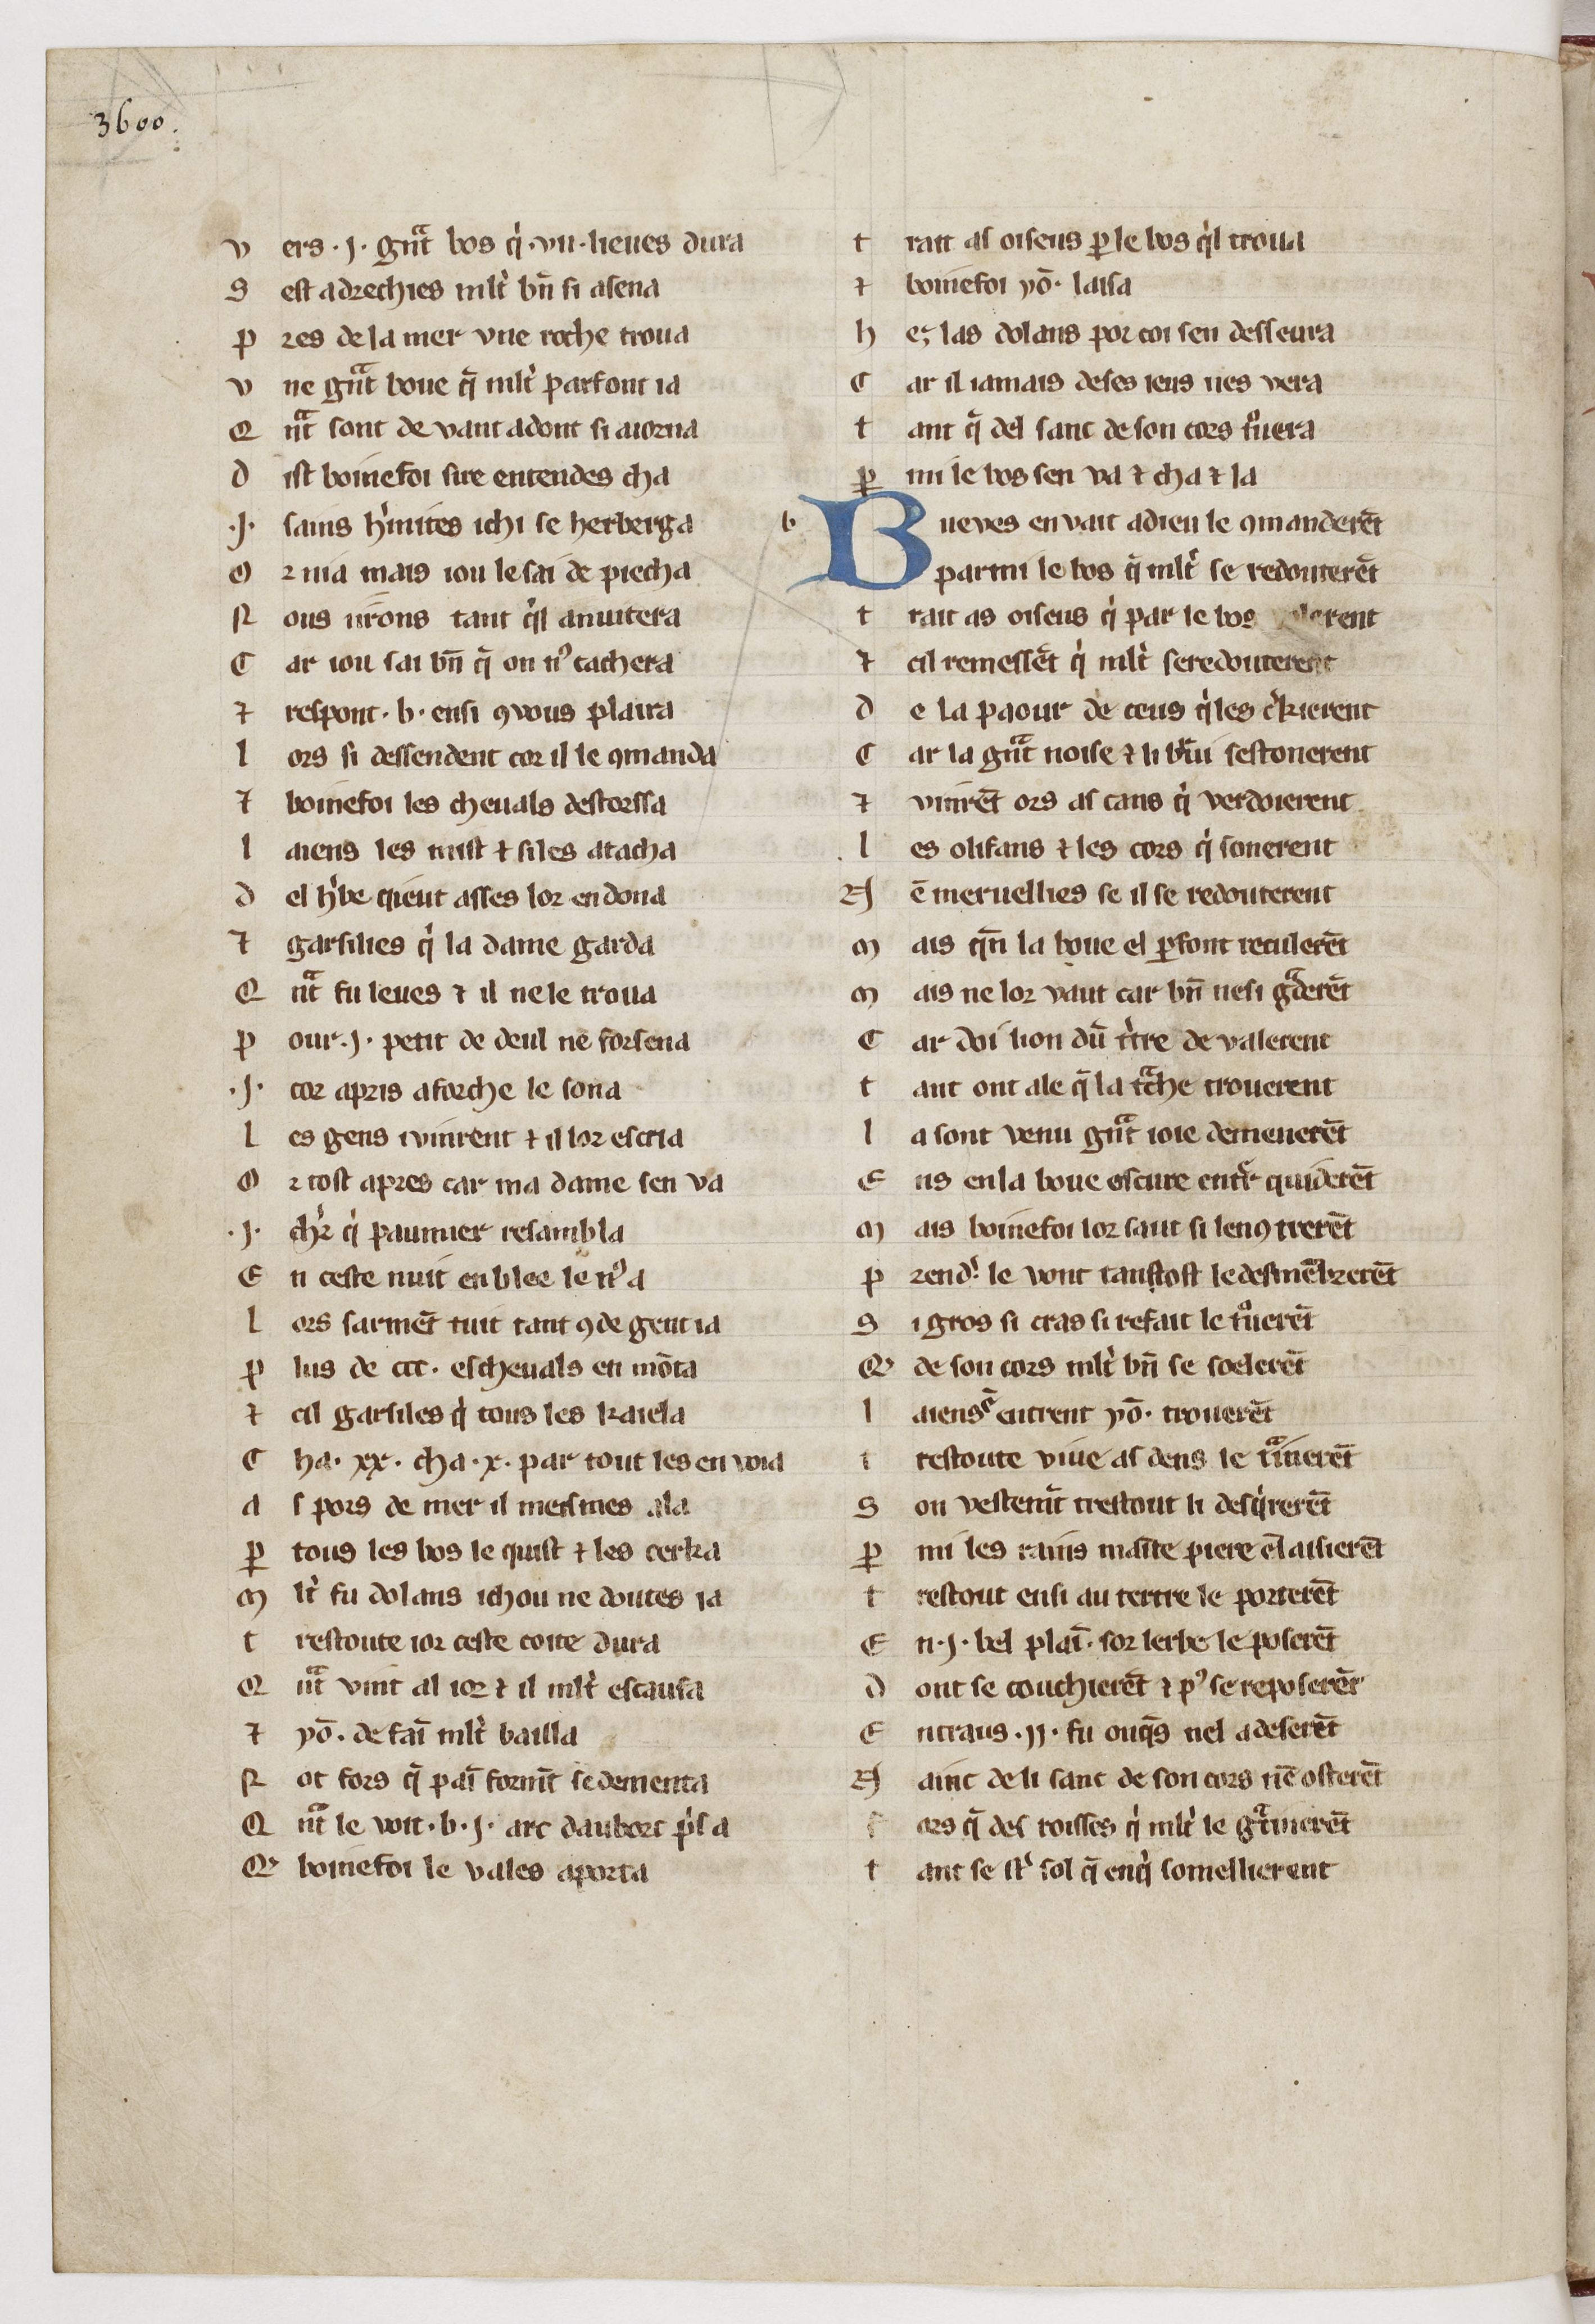 3600.
v ers .j. gnᷓt bos q̍ .vii. lieues dura
S est adrechies ml̄t bn̄ si asena
p res de la mer vne roche troua
v ne gnᷓt boue q̄ ml̄t parfont ia
Q nᷓt sont de vant adont si aiorna
d ist boinefoi sire entendes cha
.J. sains h̍mites ichi se herberga
O r nia mais iou le sai de piecha
N ous irōns tant q̍l anuitera
C ar iou sai bn̄ q̄ on nꝰ cachera
⁊ respont .b. ensi ꝯvous plaira
l ors si dessendent cor il le ꝯmanda
⁊ boinefoi les cheuals destorssa
l aiens les mist ⁊ siles atacha
d el h̍be qieut asses lor en dona
⁊ garsilies q̍ la dame garda
Q nᷓt fu leues ⁊ il nele troua
p our .J. petit de deul ne forsena
.J. cor apris aforche le sona
l es gens i vinrent ⁊ il lor escria
O r tost apres car ma dame sen va
.J. ch̄r q̍ paumier resambla
E n ceste nuit enblee le nꝰ a
l ors sarmēt tuit tant ꝯde gent ia
p lus de ccc. escheuals en mōta
⁊ cil garsiles q̍ tous les kaiela
C ha .xx. cha .x. par tout les en voia
a s pors de mer il meismes ala
ꝑ tous les bos le quist ⁊ les cerka
M l̄t fu dolans ichou ne doutes ia
t restoute ior ceste coite dura
Q nᷓt vint al ior ⁊ il ml̄t escausa
⁊ yō. de faī ml̄t bailla
N ot fors q̄ paī formt̄ se dementa
Q nᷓt le voit .b. J. arc daubore p̍s a
Qꝰ boinefoi le vales aporta
t rait as oiseus ꝑ le bos q̍l troua
⁊ boinefoi yō. laisa
h e; las dolans por coi sen desseura
C ar il iamais deses ieus nes vera
t ant q̄ del sanc de son cors tͦuera
ꝑ mi le bos sen va ⁊ cha ⁊ la
b Bueves en vait adieu le ꝯmanderēt
parmi le bos q̄ ml̄t se redouterēt
t rait as oiseus q̍ par le bos
⁊ cil remessēt q̍ ml̄t seredouterent
d e la paour de ceus q̍les c̍kierent
C ar la gnᷓt noise ⁊ li brui sestonerent
⁊ vinrēt ors as cans q̍ verdoierent
l es olifans ⁊ les cors q̍ sonerent
N ē meruellies se il se redouterent
M ais qn̄ la boue el ꝑfont reculerēt
M ais ne lor vaut car bn̄ nesi gᷓderēt
C ar doi lion dū t̍tre de valerent
t ant ont ale q̄ la tᷓche trouerent
l a sont venu gnᷓt ioie demenerēt
E ns enla boue oscure entr̄ quiderēt
M ais boinefoi lor saut si lenꝯtrerēt
p rend̍ le vont tanstost le desmēbrerēt
S i gros si cras si refait le tͦuerēt
Qꝰ de son cors ml̄t bn̄ se soelerēt
l aiens ē entrent yō. trouerēt
t restoute viue as dens le tᷓinerēt
S on vestemt̄ trestout li desq̍rerēt
ꝑ mi les rains mainte piere ēlaisierēt
t restout ensi au tertre le porterēt
E n .J. bel plaī. sor lerbe le poserēt
d ont se couchierēt ⁊ pꝰ se reposerēt
E ntraus .ij. fu onq̄s nel adeserēt
N ainc de li sanc de son cors nē osterēt
f ors q̄ des roisses q̍ ml̄t le gᷓtinerēt
t ant se st̍ sol q̄ enq̍ somellierent